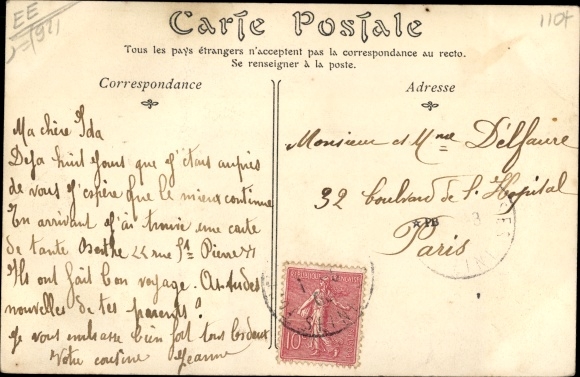 EE
1104
Carte Postale
Tous les pays étrangers n'acceptent pas la correspondance au recto.
Se renseigner à la poste.
Correspondance
Adresse
Ma chère Ida
Deja huit jours que j'étais auprès
de vous j'espère que le mieux continue
En arrivant j'ai trouvé une carte
de tante Berthe rue St Pierre
Ils ont fait bon voyage. As-tu des
nouvelles de tes parents?
Je vous embrasse bien fort tous les deux
Votre cousine Jeanne
Monsieur et Mme Delfaure
32 boulevard de l'Hopital
Paris
REPUBLIQUE FRANÇAISE
10